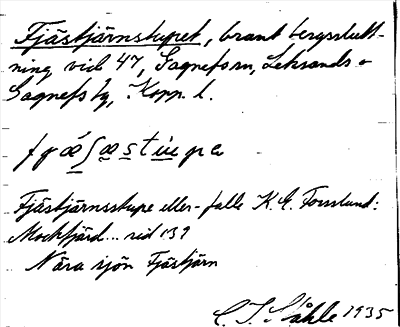 Fjästjärnstupet, brant bergsslutt-
ning vid 47, Sågnefors, Leksands o
Gagnefs tg, Kopp. l.
Fjästjärnsstupe eller -falle K. E. Forsslund:
Mockfjärd... sid 139
Nära sjön Fjästjärn
C. I. Ståhle 1935